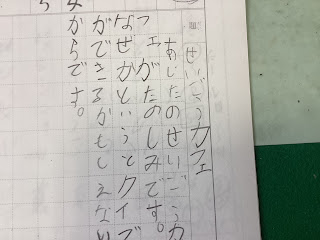 せいごうカフェ
あしたのせいごうカ
フェがたのしみです。
なぜかというとクイ
ができるかもしえな
からです。